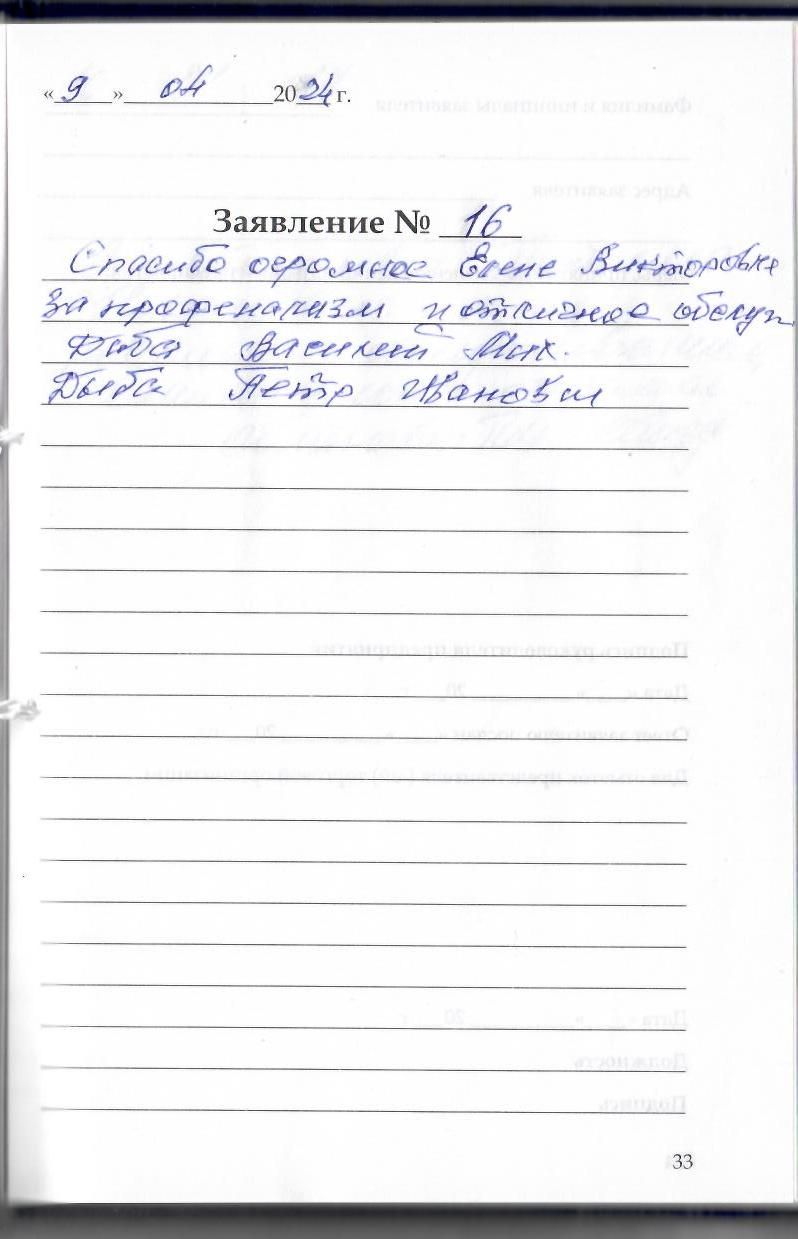 «9» 04 2024 г.
Заявление № 16
Спасибо огромное Елене Викторовне
за професнализм и отличное обслуж
Дыба Василий Мих.
Дыба Петр Иванович
33